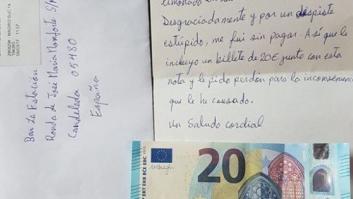 Bar La Estación
Ronda de José María Monforte S/N
Candeleda 05480
España
limonada
Desgraciadamente y por un despiste
estúpido, me fui sin pagar. Así que le
incluyo un billete de 20€ junto con esta
nota y le pido perdón para la inconveniencia
que le he causado.
Un saludo cordial
20